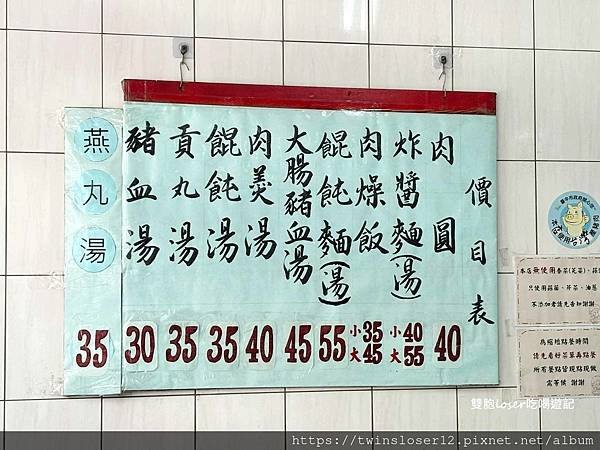 價目表
肉圓 40
炸醬麵(湯) 小40 大55
肉燥飯 小35 大45
餛飩麵(湯) 55
大腸豬血湯 45
肉羹湯 40
餛飩湯 35
貢丸湯 35
豬血湯 30
燕丸湯 35
本店無使用香菜(芫荽)、蒜
只使用蒜苗、芹菜、油蔥
不添加者請先告知謝謝
為縮短點餐時間
請先看好菜單再點餐
所有餐點皆現點現做
需等候 謝謝
雙胞loser吃喝遊記
https://twinsloser12.pixnet.net/album